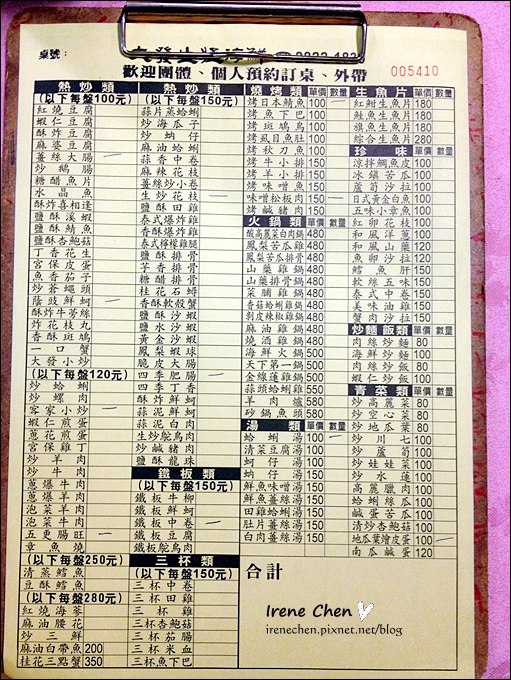 桌號：
歡迎團體、個人預約訂桌、外帶
005410
熱炒類
(以下每盤100元)
紅燒豆腐
蝦仁豆腐
酥炸豆腐
麻婆豆腐
薑絲大腸
炒鵝腸
糖醋魚片
水晶魚
酥炸喜相逢
鹽酥溪蝦
鹽酥鯖魚
鹽酥杏鮑菇
丁香花生
宮保皮蛋
魚香茄子
炒蒼蠅頭
蔭豉鮮蚵
酥炸牛蒡絲
炸花枝丸
香酥斑鳩
一口蟹
大發小炒
(以下每盤120元)
炒蛤蜊
炒螺肉
客家小炒
蝦仁煎蛋
蔥花煎蛋
宮保雞丁
炒羊肉
炒牛肉
蔥爆牛肉
蔥爆羊肉
泡菜羊肉
泡菜牛肉
五更腸旺
章魚燒
(以下每盤250元)
清蒸鱈魚
豆酥鱈魚
(以下每盤280元)
紅燒海蔘
麻油腰花
炒三鮮
麻油白帶魚 200
桂花三點蟹 350
熱炒類
(以下每盤150元)
蒜片蒸蛤蜊
炒海瓜子
炒蚋仔
麻油蛤蜊
蒜香中卷
麻辣花枝
薑絲炒小卷
生炒花枝
鹽酥田雞
泰式爆炸雞
香酥爆炸雞
泰式檸檬雞腿
鹽酥排骨
子香排骨
糖醋排骨
桂花石蟳
香酥軟殼蟹
鹽酥沙蝦
鹽水沙蝦
黃金沙蝦
鳳梨蝦球
脆皮大腸
四季肥腸
四季丁香
酥炸鮮蚵
蒜泥鮮蚵
蒜泥白肉
生炒鴕鳥肉
炒鹹豬肉
鹽酥龍珠
鐵板類
(以下每盤150元)
鐵板牛柳
鐵板鮮蚵
鐵板中卷
鐵板豆腐
鐵板鴕鳥肉
三杯類
(以下每盤150元)
三杯中卷
三杯田雞
三杯雞
三杯杏鮑菇
三杯茄腸
三杯米血
三杯魚下巴
燒烤類 單價 數量
烤日本鯖魚 100
烤魚下巴 100
烤斑鳩鳥 100
烤虱目魚肚 100
烤秋刀魚 100
烤牛小排 150
烤羊小排 150
烤味噌魚 150
味噌松板肉 150
烤鹹豬肉 150
火鍋類 單價 數量
酸高麗菜白肉鍋 480
鳳梨苦瓜雞 480
鳳梨苦瓜排骨 480
山藥雞鍋 480
山藥排骨鍋 480
菜脯雞鍋 480
香菇蛤蜊雞鍋 480
剝皮辣椒雞鍋 480
麻油雞鍋 480
燒酒雞鍋 480
海鮮火鍋 500
天下第一鍋 500
金線蓮雞鍋 500
蒜頭蛤蜊雞 550
羊肉爐 580
砂鍋魚頭 580
湯類 單價 數量
蛤蜊湯 100
清菜豆腐湯 100
蚵仔湯 100
蚋仔湯 100
鮮魚味噌湯 150
鮮魚薑絲湯 150
田雞蛤蜊湯 150
肚片薑絲湯 150
白肉薑絲湯 150
生魚片 單價 數量
紅魽生魚片 180
鮭魚生魚片 180
旗魚生魚片 180
綜合生魚片 280
珍味 單價 數量
涼拌鯛魚皮 100
冰鎮苦瓜 100
蘆筍沙拉 100
日式黃金白魚 100
五味小章魚 100
紅卵花枝 100
和風洋蔥 100
和風山藥 120
魚卵沙拉 120
鱈魚肝 150
軟絲五味 150
泰式中卷 150
美味油雞 150
蟹肉沙拉 150
炒麵飯類 單價 數量
肉絲炒麵 80
海鮮炒麵 100
肉絲炒飯 80
蝦仁炒飯 100
青菜類 單價 數量
炒高麗菜 80
炒空心菜 80
炒地瓜葉 80
炒川七 100
炒蘆筍 100
炒娃娃菜 100
炒水蓮 100
高麗臘肉 100
蛤蜊絲瓜 100
鹹蛋苦瓜 100
清炒杏鮑菇 100
地瓜葉燴皮蛋 100
南瓜鹹蛋 120
合計
Irene Chen
irenechen.pixnet.net/blog